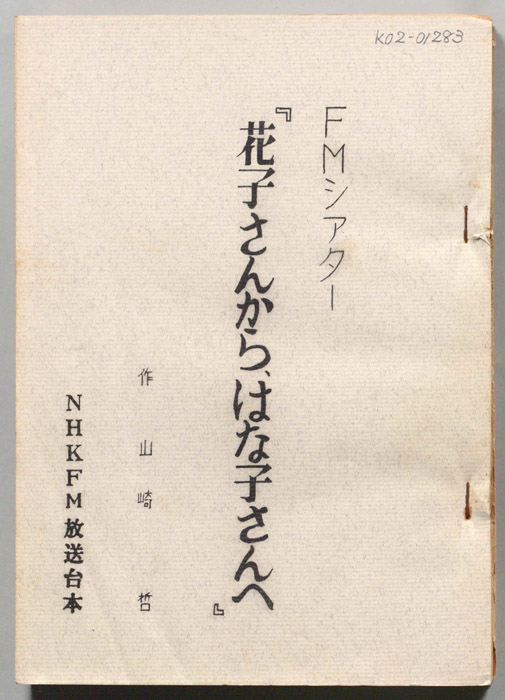 K02-01283
FMシアター
『花子さんから、はな子さんへ』
作 山崎 哲
NHKFM放送台本